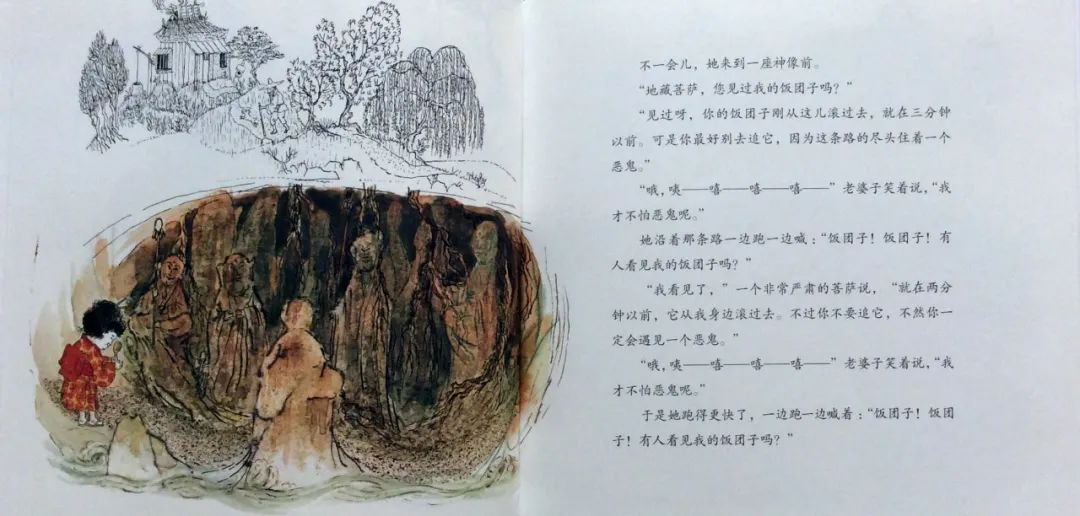 不一会儿，她来到一座神像前。
“地藏菩萨，您见过我的饭团子吗？”
“见过呀，你的饭团子刚从这儿滚过去，就在三分钟
以前。可是你最好别去追它，因为这条路的尽头住着一个
恶鬼。”
“哦，咦——嘻——嘻——嘻——”老婆子笑着说，“我
才不怕恶鬼呢。”
她沿着那条路一边跑一边喊：“饭团子！饭团子！有
人看见我的饭团子吗？”
“我看见了，”一个非常严肃的菩萨说，“就在两分
钟以前，它从我身边滚过去。不过你不要追它，不然你一
定会遇见一个恶鬼。”
“哦，咦——嘻——嘻——嘻——”老婆子笑着说，“我
才不怕恶鬼呢。”
于是她跑得更快了，一边跑一边喊着：“饭团子！饭团
子！有人看见我的饭团子吗？”